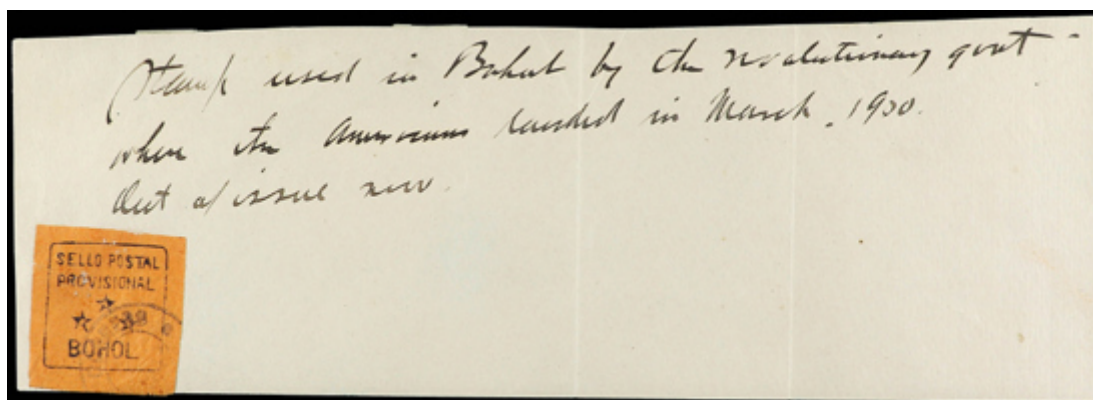 Stamp used in Bohol by the revolutionary govt -
when the Americans landed in March, 1900.
Out of issue now.
SELLO POSTAL
PROVISIONAL
BOHOL